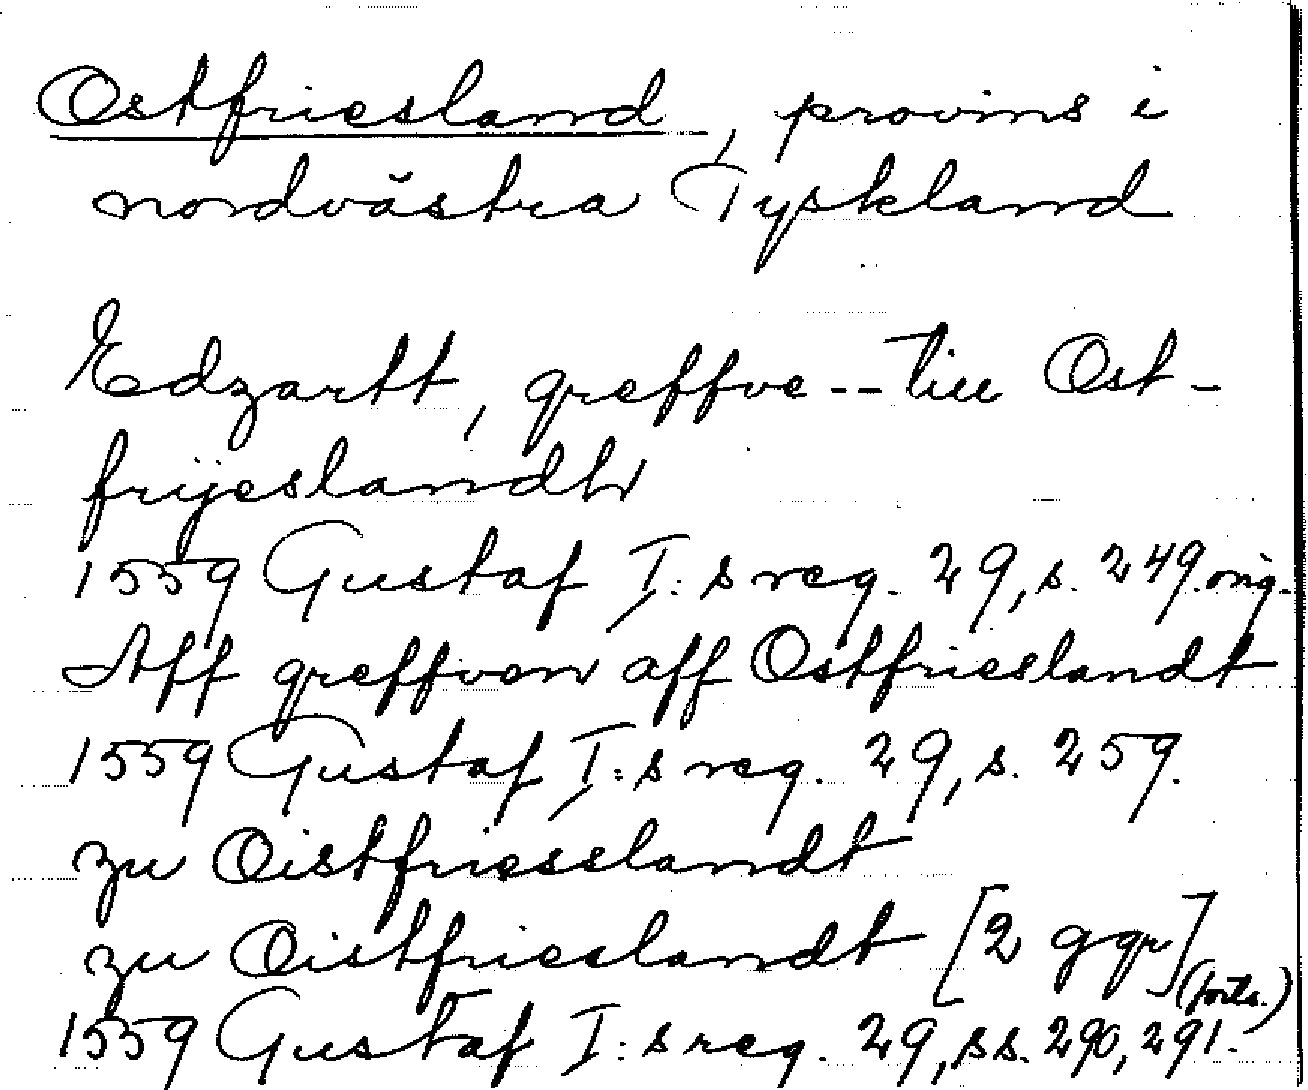 Ostfriesland, provins i
nordvästra Tyskland
Edzartt, greffve -- till Ost-
frijeslandtt
1559 Gustaf I:s reg. 29, s. 249. orig.
Aff greffven aff Ostfrieslandt
1559 Gustaf I:s reg. 29, s. 259.
zu Oistfriesslandt
zu Oistfrieslandt [2 ggr]
(forts.)
1559 Gustaf I:s reg. 29, ss. 290, 291.